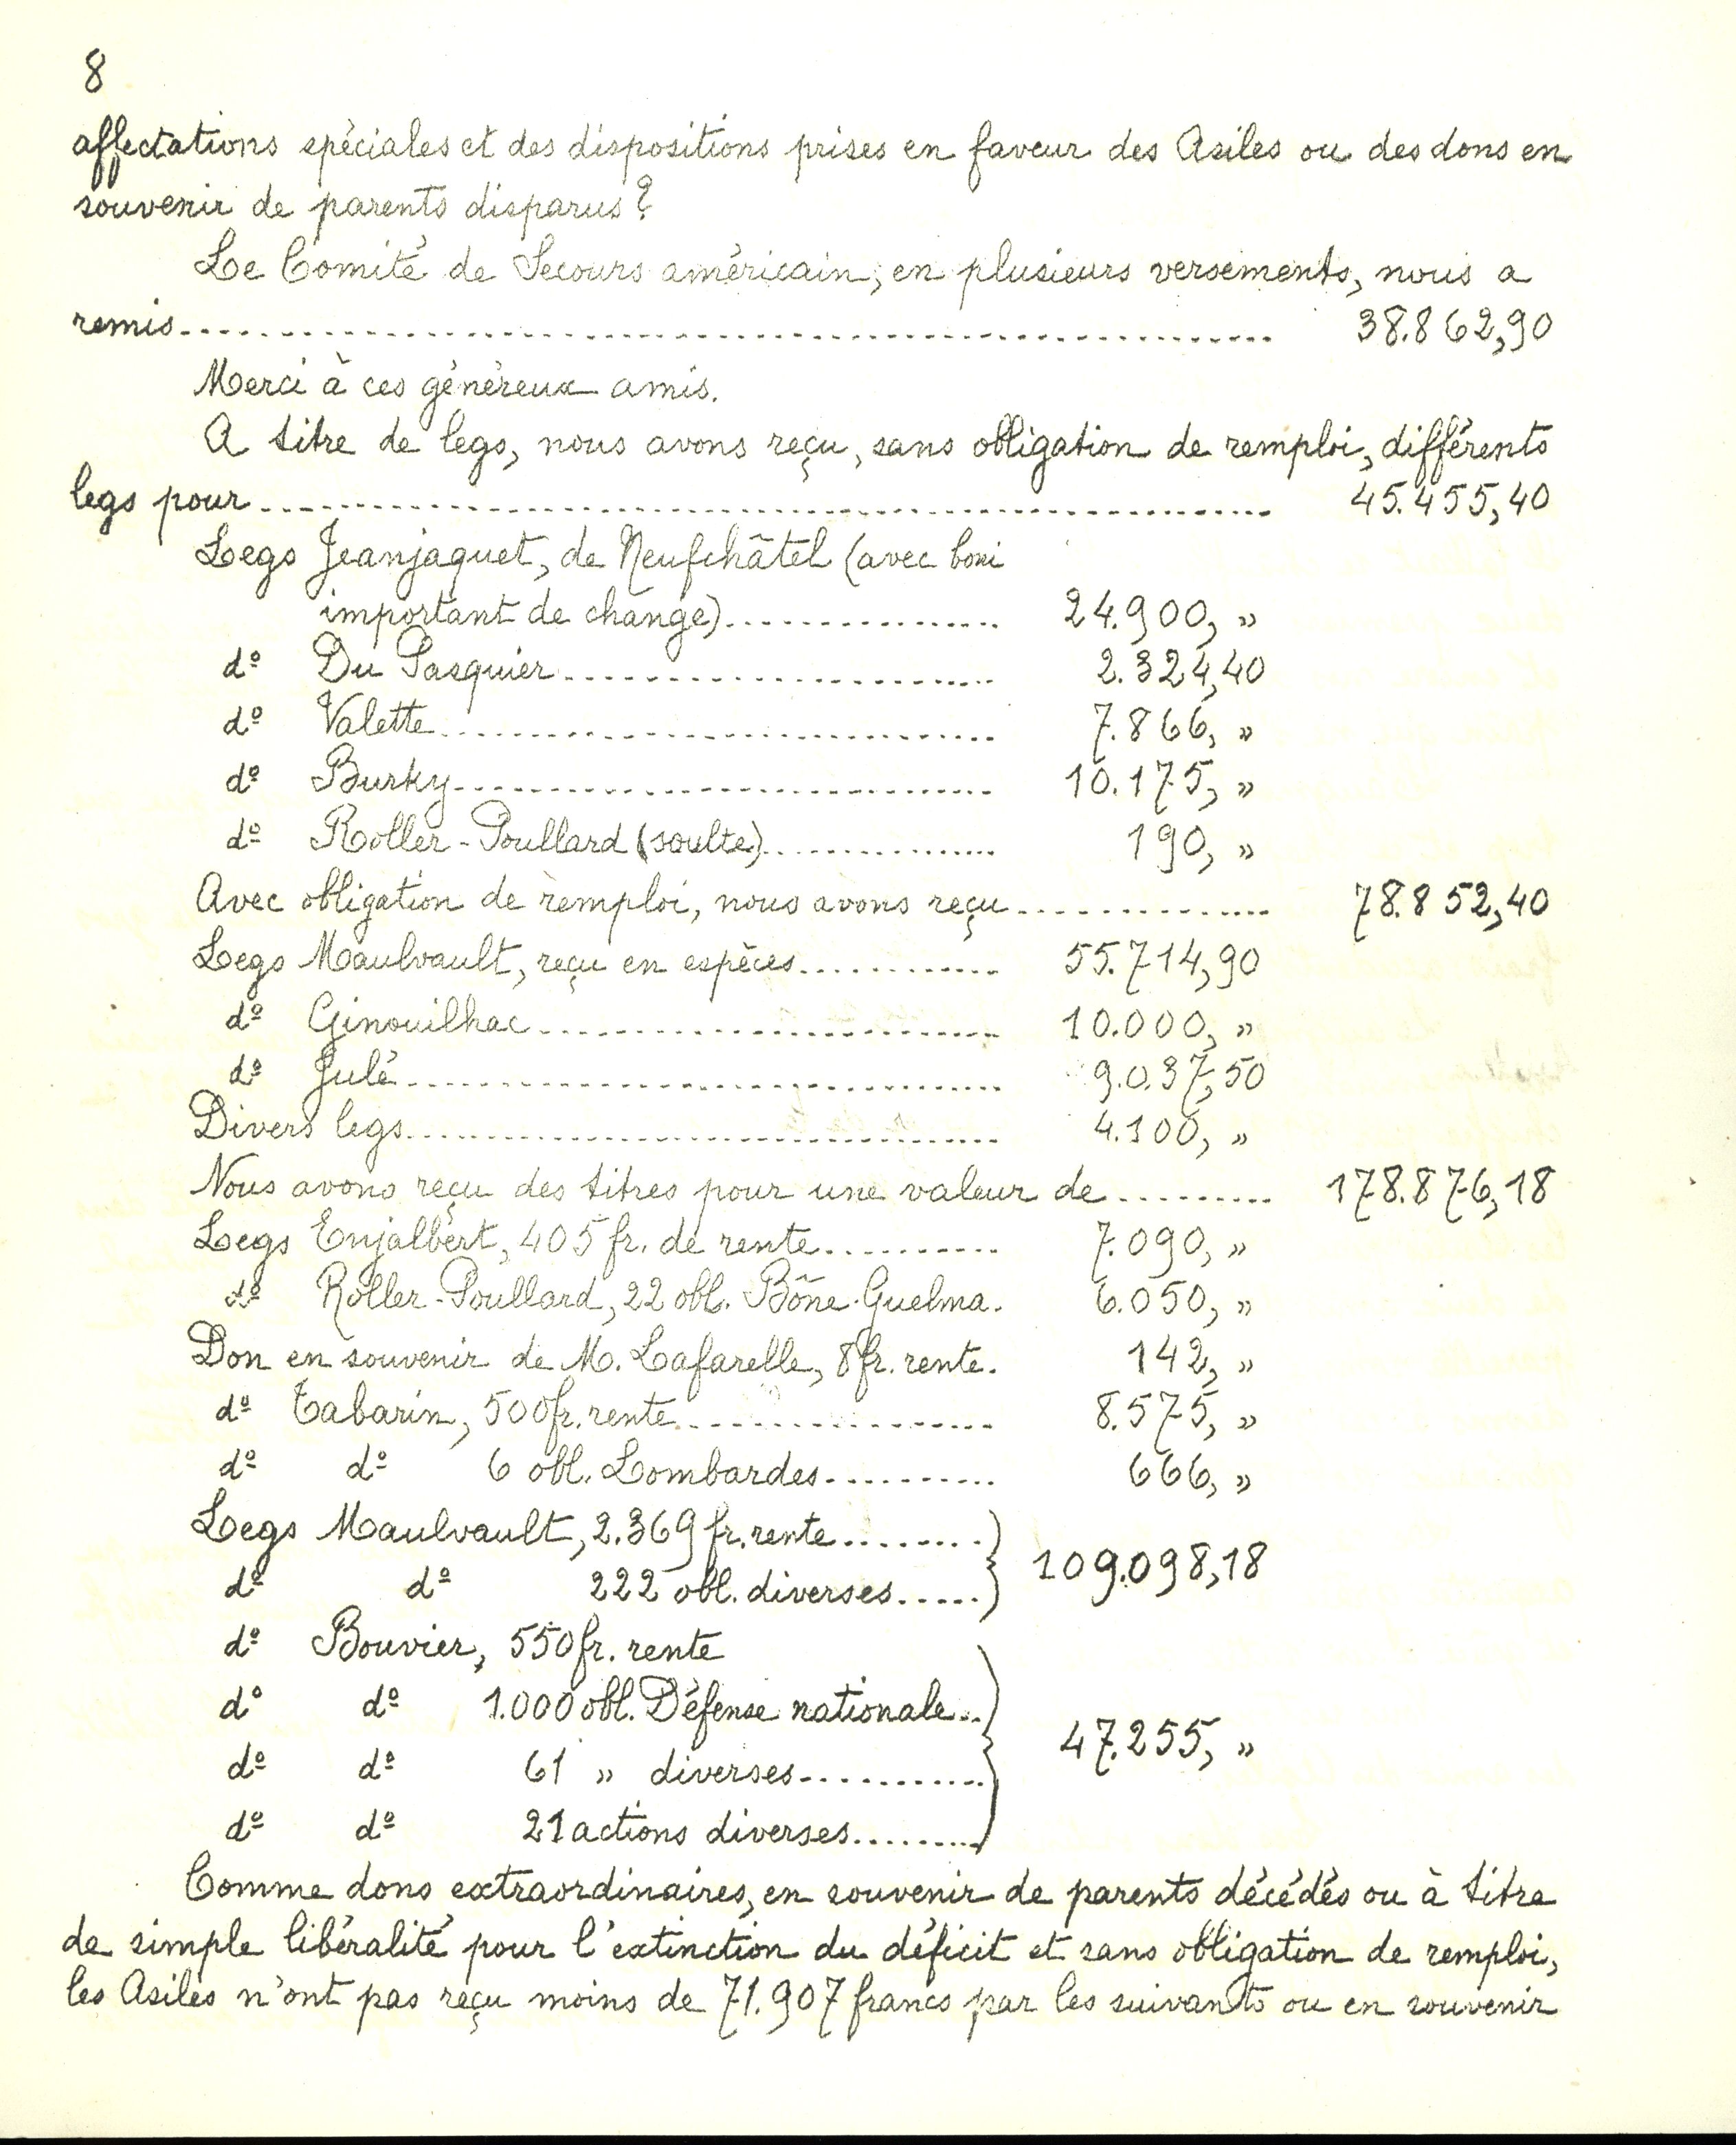 8
affectations spéciales et des dispositions prises en faveur des Asiles ou des dons en
souvenir de parents disparus ?
Le Comité de Secours américain, en plusieurs versements, nous a
remis........................ 38.862,90
Merci à ces généreux amis.
A titre de legs, nous avons reçu, sans obligation de remploi, différents
legs pour........................ 45.455,40
Legs Jeanjaquet, de Neufchâtel (avec boni
important de change)................ 24.900, »
dº Du Pasquier........................ 2.324,40
dº Valette........................ 7.866, »
dº Burky........................ 10.175, »
dº Roller-Poullard (soulte)................ 190, »
Avec obligation de remploi, nous avons reçu............... 78.852,40
Legs Maulvault, reçu en espèces............. 55.714,90
dº Ginouilhac........................ 10.000, »
dº Julé........................ 9.037,50
Divers legs........................ 4.100, »
Nous avons reçu des titres pour une valeur de.......... 178.876,18
Legs Enjalbert, 405 fr. de rente........... 7.090, »
dº Roller-Poullard, 22 obl. Bône-Guelma. 6.050, »
Don en souvenir de M. Lafarelle, 8 fr. rente. 142, »
dº Tabarin, 500 fr. rente.................. 8.575, »
dº dº 6 obl. Lombardes........... 666, »
Legs Maulvault, 2.369 fr. rente........
dº dº 222 obl. diverses..... } 109.098,18
dº Bouvier, 550 fr. rente
dº dº 1.000 obl. Défense nationale..
dº dº 61 » diverses............ } 47.255, »
dº dº 21 actions diverses.........
Comme dons extraordinaires, en souvenir de parents décédés ou à titre
de simple libéralité pour l'extinction du déficit et sans obligation de remploi,
les Asiles n'ont pas reçu moins de 71.907 francs par les suivants ou en souvenir